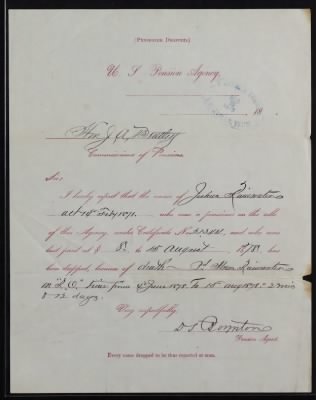 (Pensioner Dropped)
U. S. Pension Agency,
18
Hon J. A. Bentley
Commissioner of Pensions.
Sir:
I hereby report that the name of Joshua
act 14" Feby 1871. who was a pensioner on the roll
of this Agency, under Certificate No. and who was
last paid at $ 8. to 16 August 1878, has
been dropped, because of death
"L. O." Time from 4" June 1878. to 16 aug 1878. 2 mos
& 12 days.
Very respectfully,
D S Boynton
Pension Agent.
Every name dropped to be thus reported at once.